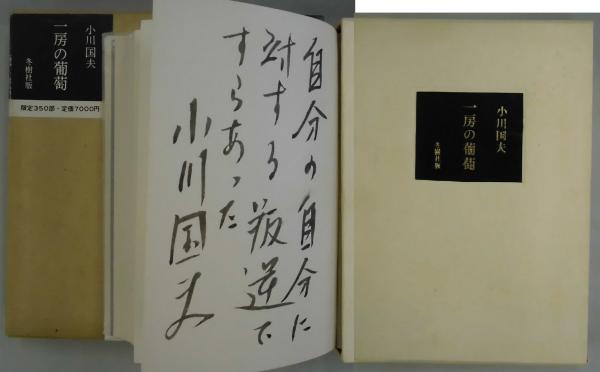 小川国夫
一房の葡萄
冬樹社版
限定350部・定価7000円
自分の自分に
対する叛逆で
すらあった
小川国夫
小川国夫
一房の葡萄
冬樹社版